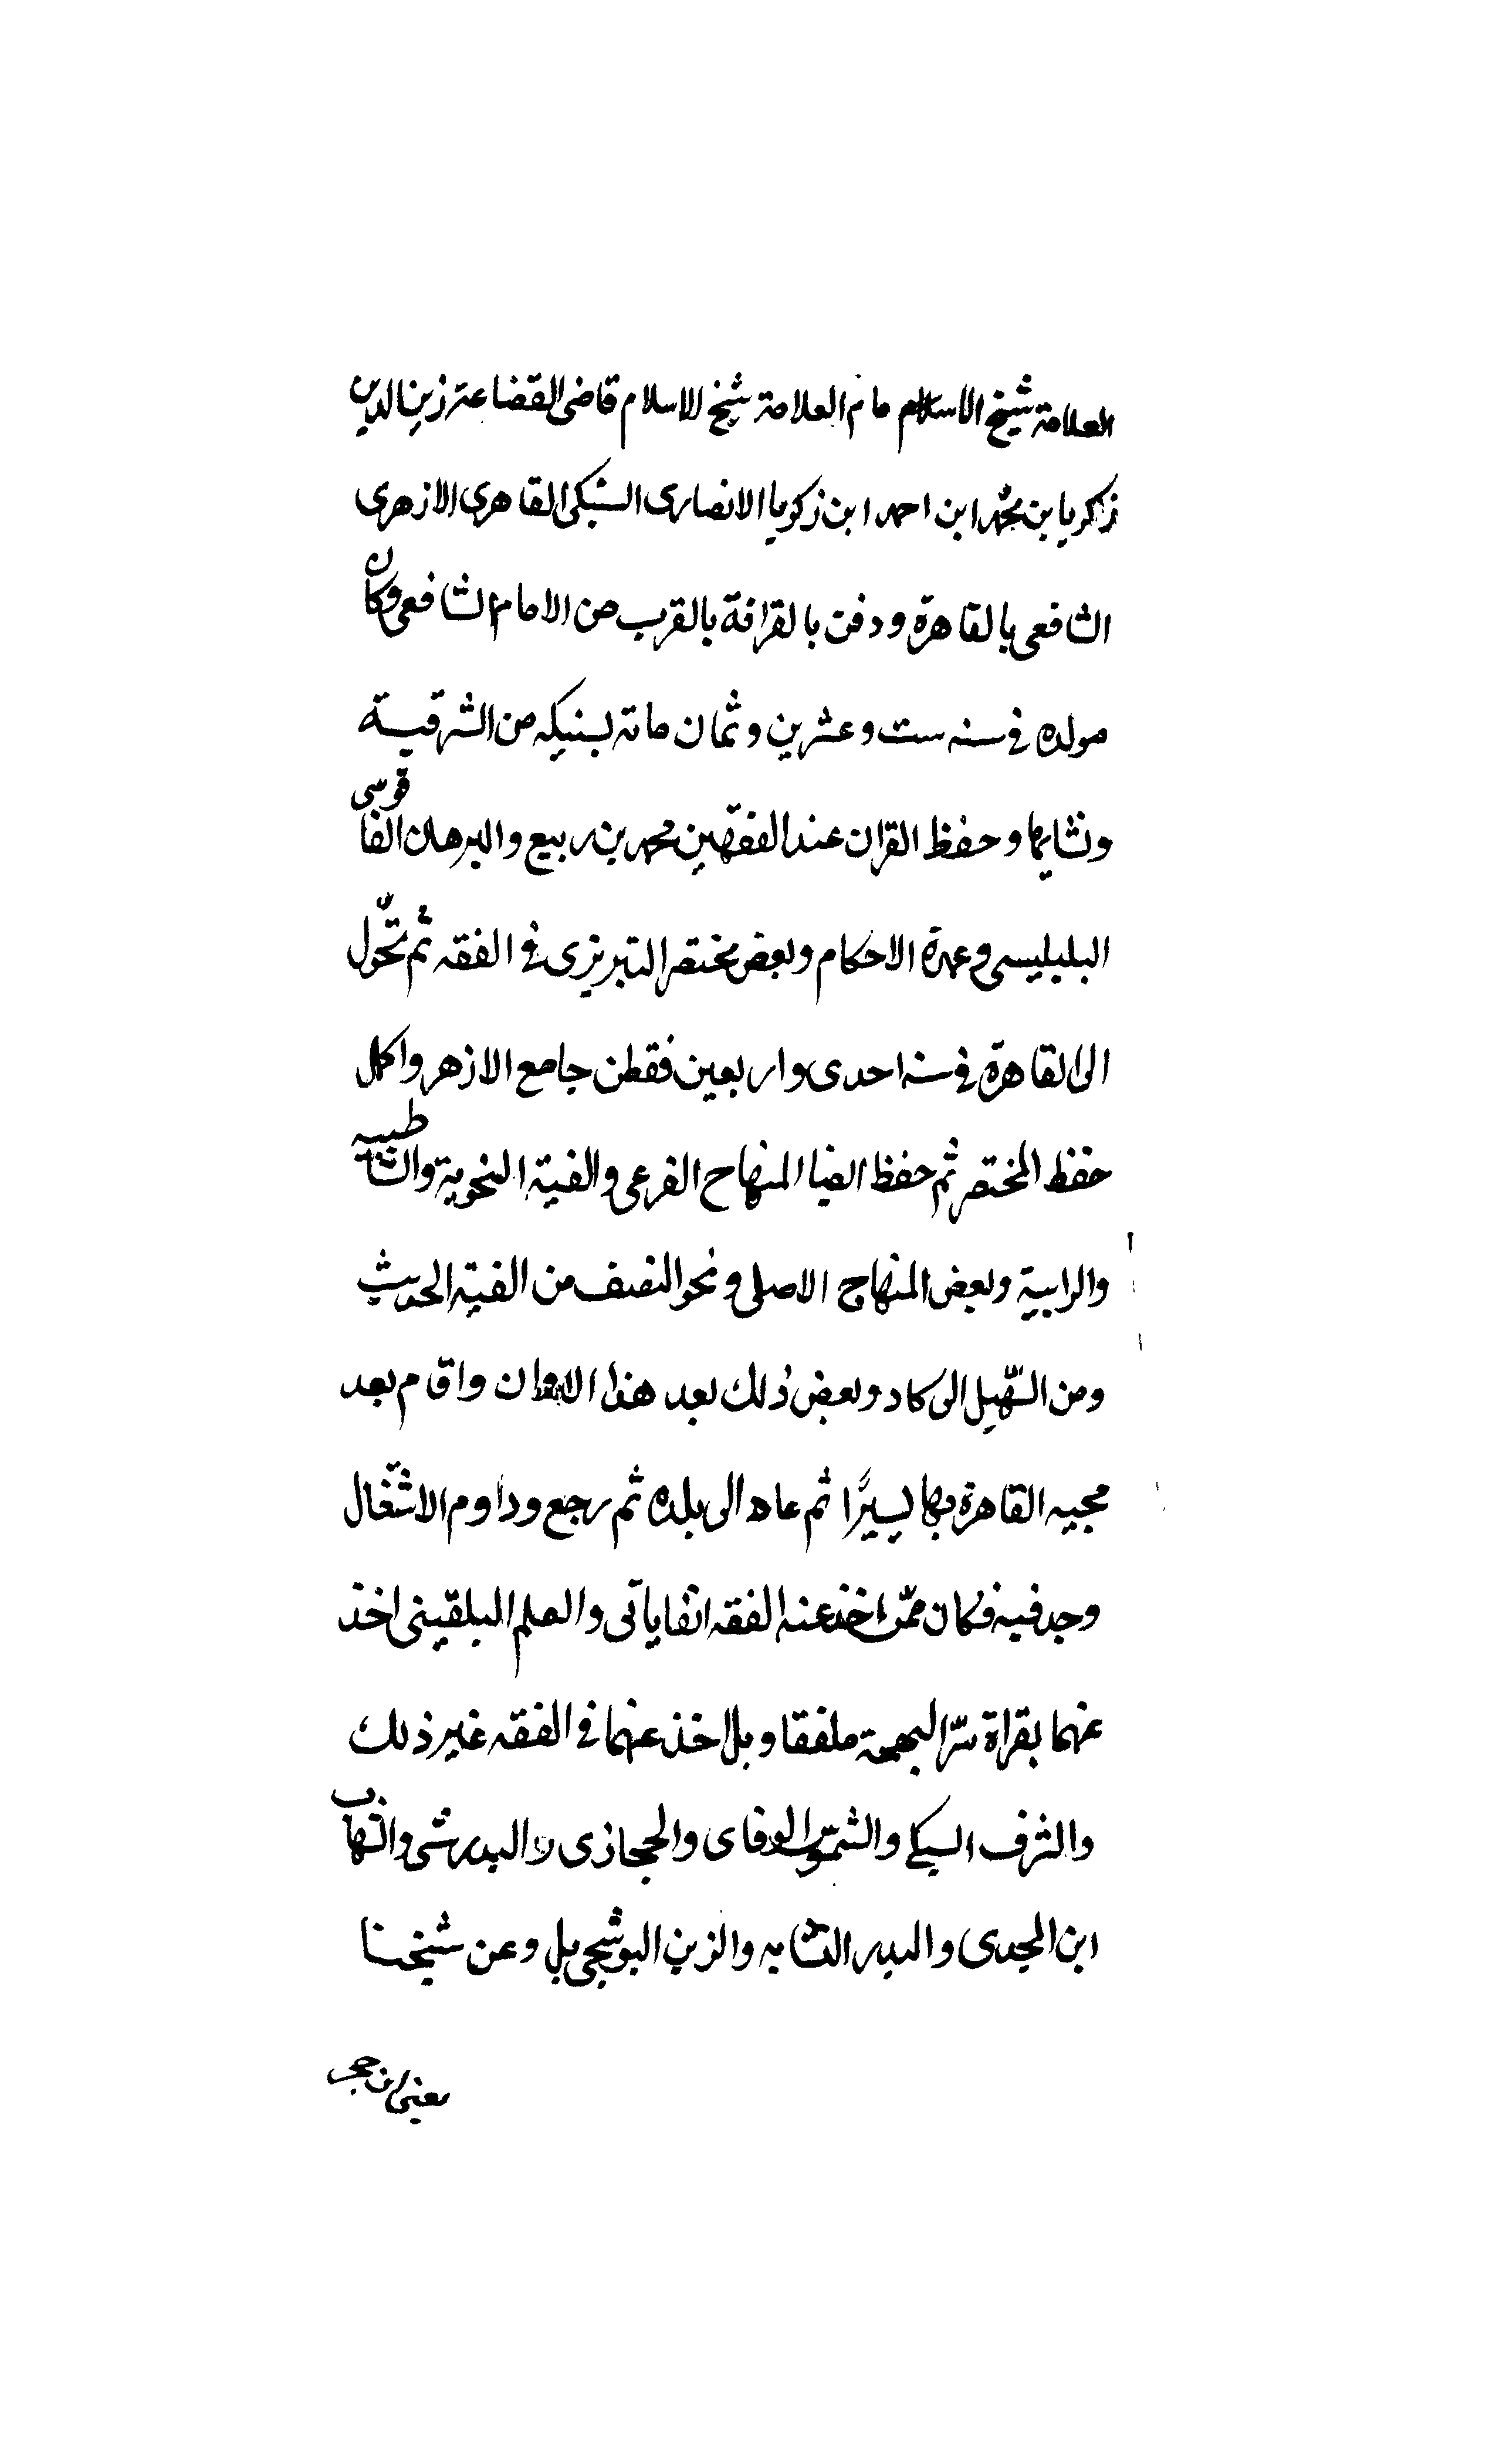 العلامة شيخ الاسلام مام العلامة شيخ الاسلام قاضى القضاعة زين الدين
زاكريا بن محمد ابن احمد ابن زكويا الانصارى السنيكى القاهرى الازهرى
الشافعى بالقاهرة ودفن بالقرافة بالقرب من الامام الشافعى وكان
مولده فى سنه ست وعشرين وثمان مائة بسنيكه من الشرقية
ونشا بها وحفظ القران عند الفقهين محمد بن ربيع والبرهان الفاقوسى
البلبليسى وعمدة الاحكام وبعض مختصر التبريزى فى الفقه ثم تحّول
الى القاهرة فى سنه احدى واربعين فقطن جامع الازهر واكمل
حفظ المختصر ثم حفظ ايضا المنهاج الفرعى والفية النحوية والشاطبيه
والرابية وبعض المنهاج الاصلى ونحو النصف من الفية الحديث
ومن التسهيل الى كاد وبعض ذلك بعد هذا الاوان واقام بعد
مجيه القاهرة بها يسيرًا ثم عاد الى بلده ثم رجع وداوم الاشتغال
وجد فيه فكان ممّن اخذ عنه الفقه القاياتى والعلم البلقينى اخذ
عنهما بقراة شرّ البهجة ملفقا وبل اخذ عنهما فى الفقه غير ذلك
والشرف السبكى والشمّس الوفاى والحجازى والبدرشى والشهاب
ابن المجدى والبدر النسابه والزين البوشجى بل وعن شيخنا
يعنى ابن حجر